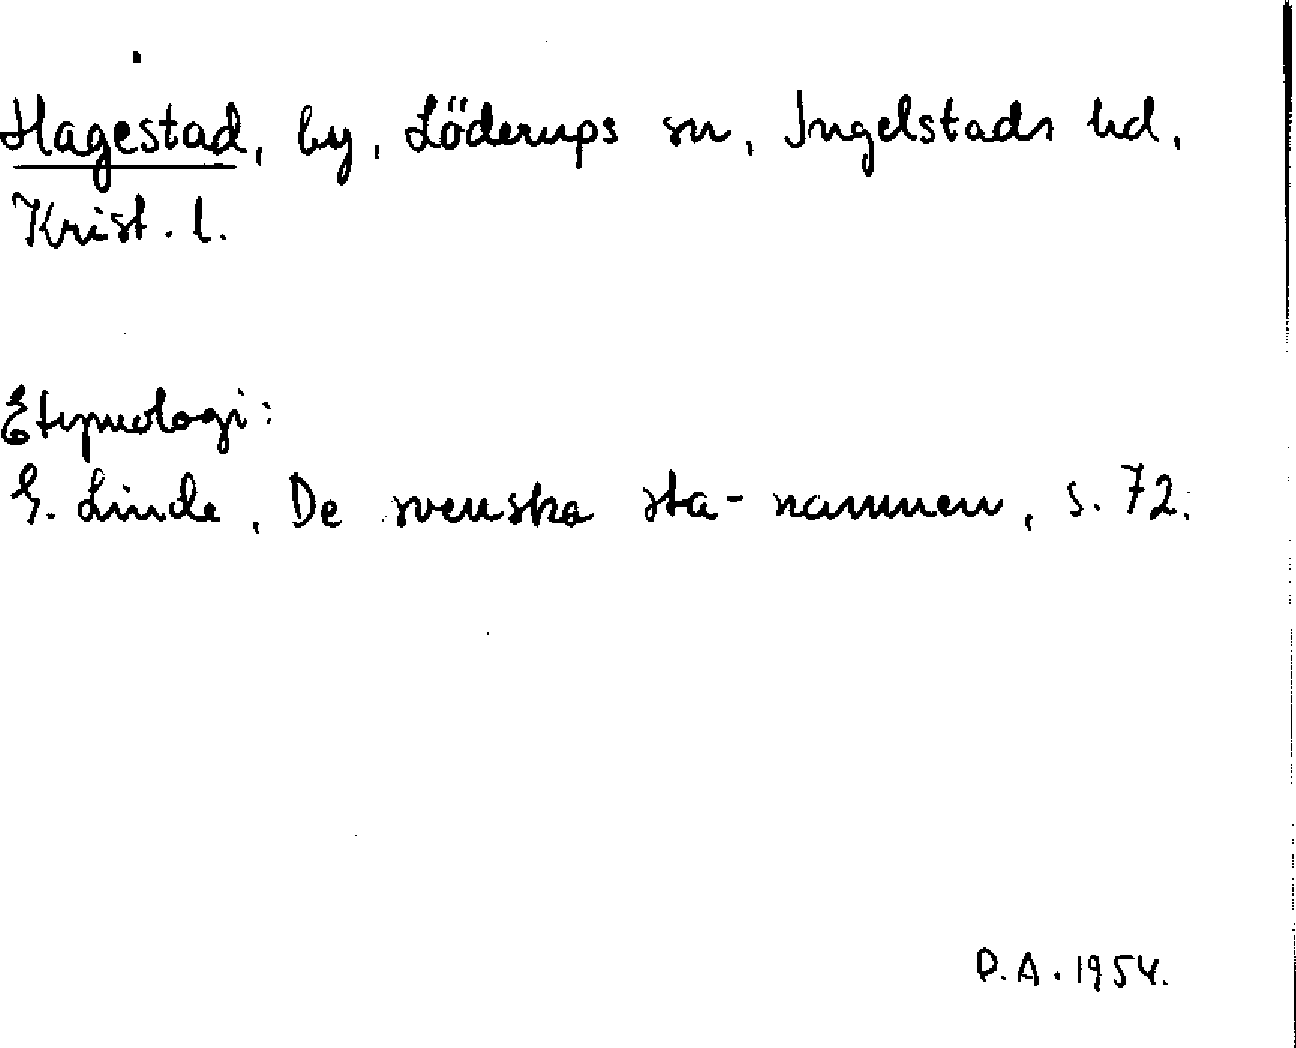 Hagestad, by, Löderups sn, Ingelstads hd,
Krist. l.
Etymologi:
G. Linde, De svenska sta-namnen, s. 72.
D.A. 1954.